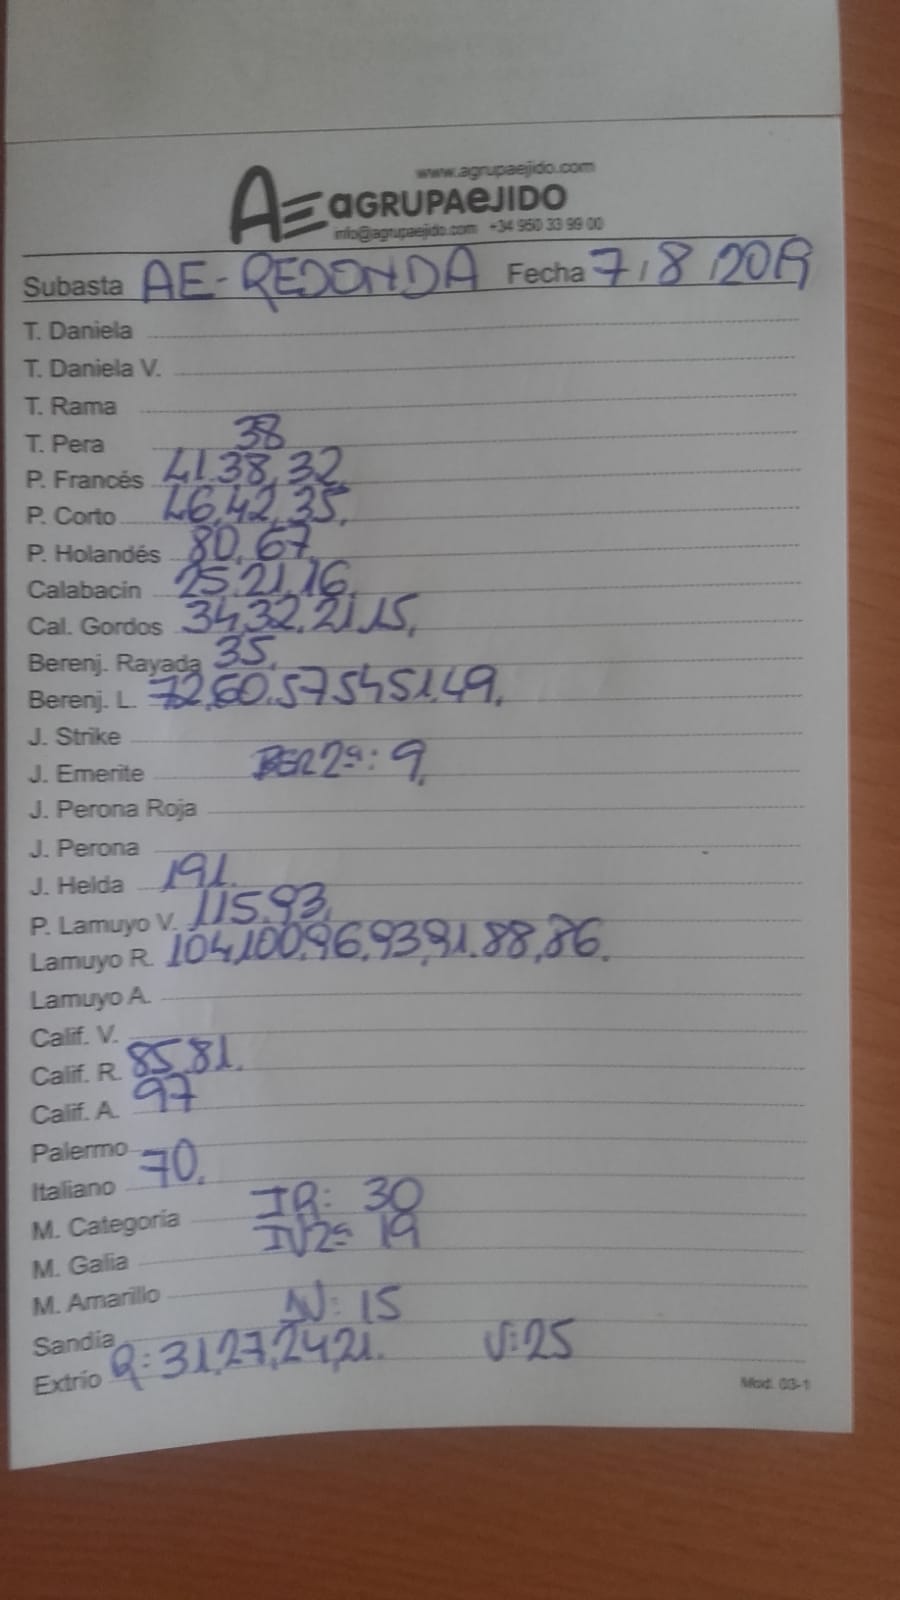 www.agrupaejido.com
AE aGRUPAeJIDO
info@agrupaejido.com +34 950 33 99 00
Subasta AE-REDONDA Fecha 7/8/2019
T. Daniela
T. Daniela V.
T. Rama
T. Pera 38
P. Francés 41.38,32,
P. Corto 46,42,35,
P. Holandés 80,67,
Calabacin 25,21,16,
Cal. Gordos 34,32,21,15,
Berenj. Rayada 35,
Berenj. L. 72,60,57,54,51,49,
J. Strike
J. Emerite BER2ª: 9,
J. Perona Roja
J. Perona
J. Helda 191.
P. Lamuyo V. 115,93,
Lamuyo R. 104,100,96,93,91.88,86.
Lamuyo A.
Calif. V.
Calif. R. 85,81.
Calif. A. 97
Palermo
Italiano 70.
M. Categoría IR: 30
M. Galia IV2ª 19
M. Amarillo
Sandía N: 15
Extrío Q: 31,27,24,21. V:25
Mod. 03-1